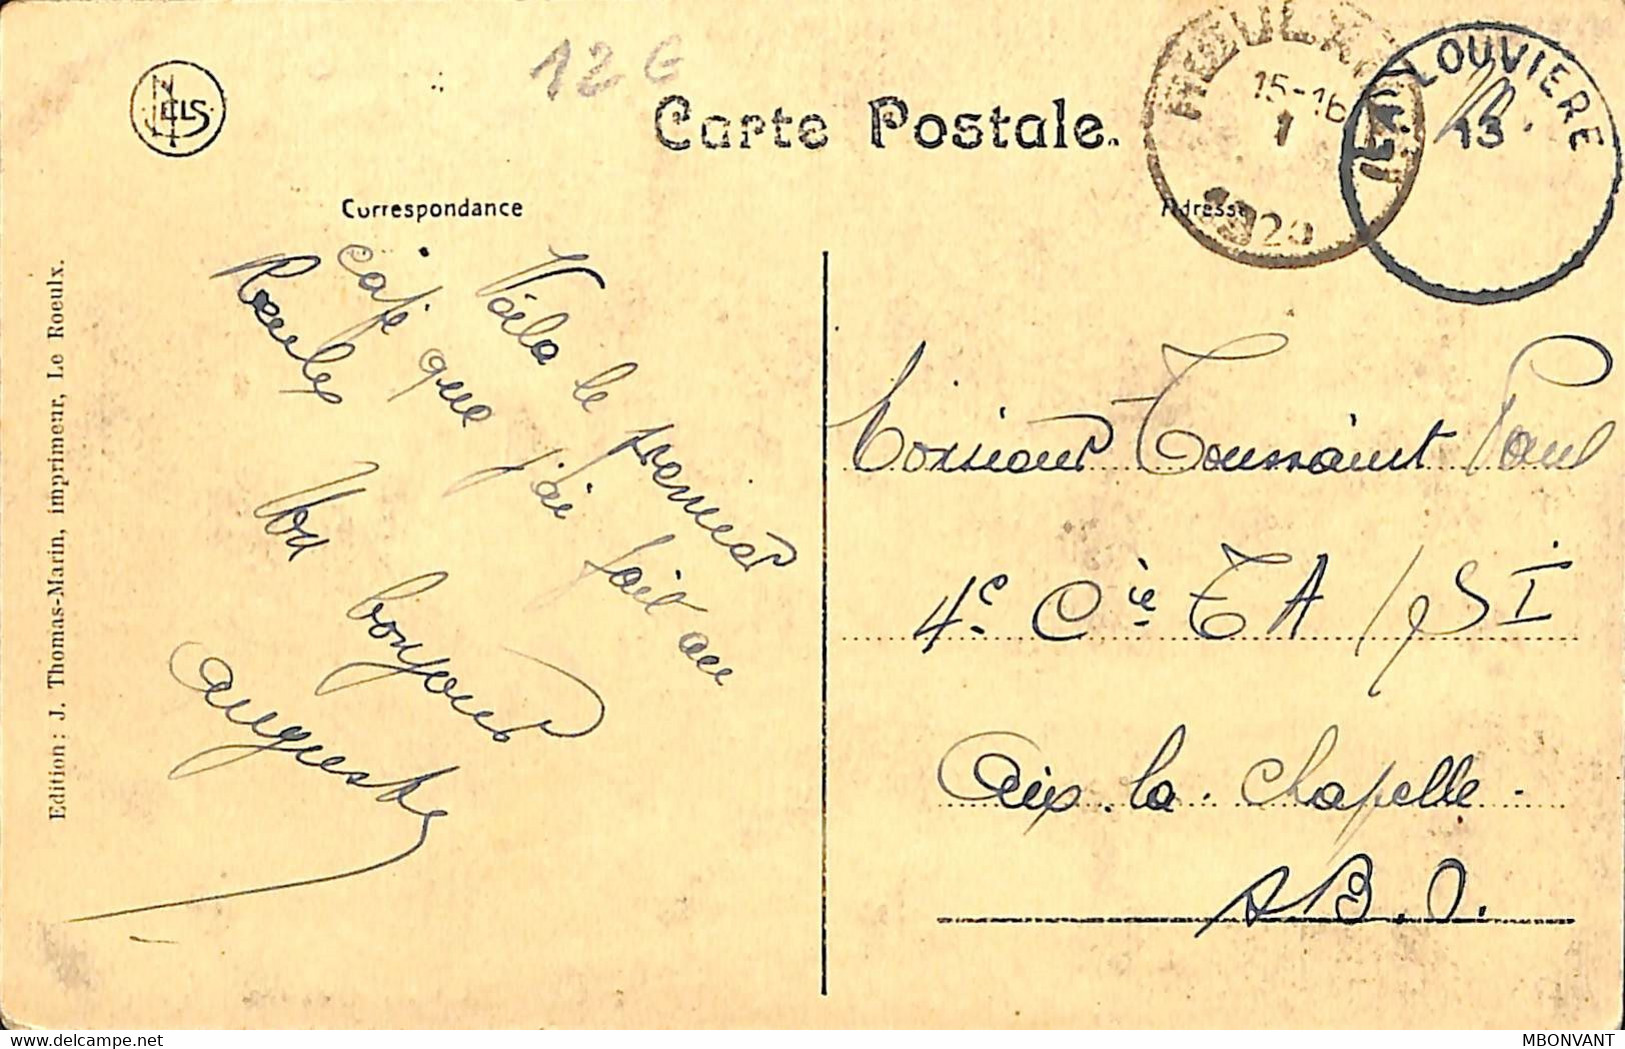 12 €
NELS
Carte Postale.
15-16
1
1920
LA LOUVIERE
13
Correspondance
Adresse
Voila le premier
café que j'ai fait au
Roeulx
Un bonjour
Auguste
Monsieur Toussaint Paul
4e Cie T A / S I
Aix-la-Chapelle
A B. O.
Edition : J. J. Thomas-Marin, imprimeur, Le Roeulx.
www.delcampe.net
MBONVANT